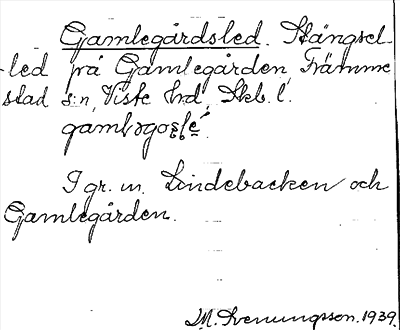 Gamlegårdsled. Stängsel-
led på Gamlegården, Främme
stad s:n, Viste hrd, Skb. l.
I gr. m. Lindebacken och
Gamlegården.
M. Svenungsson. 1939.